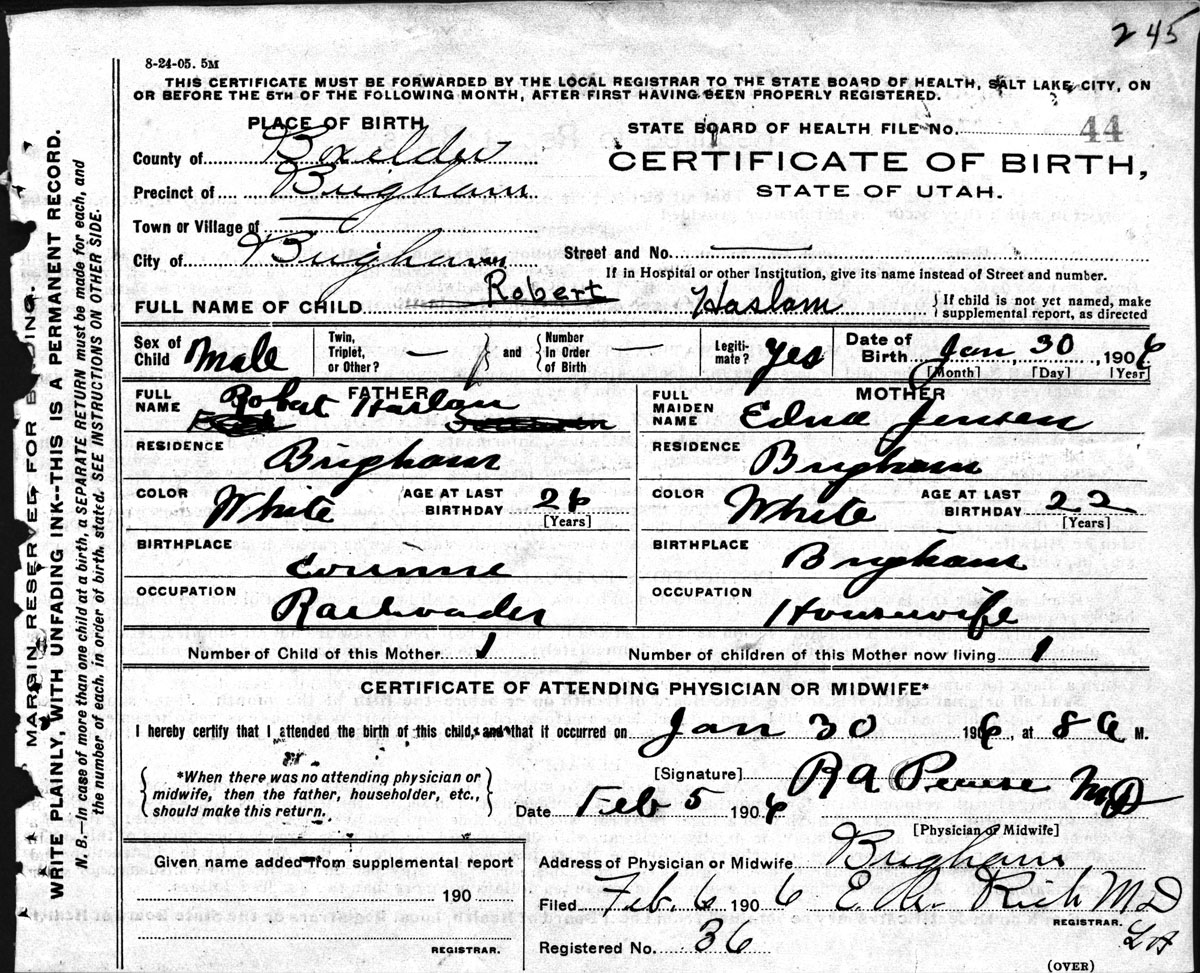 2 45
8-24-05. 5M
THIS CERTIFICATE MUST BE FORWARDED BY THE LOCAL REGISTRAR TO THE STATE BOARD OF HEALTH, SALT LAKE CITY, ON
OR BEFORE THE 5TH OF THE FOLLOWING MONTH, AFTER FIRST HAVING BEEN PROPERLY REGISTERED.
PLACE OF BIRTH
STATE BOARD OF HEALTH FILE No. 44
County of Boxelder
CERTIFICATE OF BIRTH,
Precinct of Brigham
STATE OF UTAH.
Town or Village of —
City of Brigham
Street and No. —
If in Hospital or other Institution, give its name instead of Street and number.
FULL NAME OF CHILD Robert Haslam
{ If child is not yet named, make
supplemental report, as directed
Sex of Child Male
Twin, Triplet, or Other? — } and { Number In Order of Birth —
Legiti-mate? yes
Date of Birth Jan 30, 1906
[Month] [Day] [Year]
FATHER
FULL NAME Robert Haslam
RESIDENCE Brigham
COLOR White
AGE AT LAST BIRTHDAY 26
[Years]
BIRTHPLACE Corinne
OCCUPATION Railroader
MOTHER
FULL MAIDEN NAME Edna Jensen
RESIDENCE Brigham
COLOR White
AGE AT LAST BIRTHDAY 22
[Years]
BIRTHPLACE Brigham
OCCUPATION Housewife
Number of Child of this Mother 1
Number of children of this Mother now living 1
CERTIFICATE OF ATTENDING PHYSICIAN OR MIDWIFE*
I hereby certify that I attended the birth of this child, and that it occurred on Jan 30 1906, at 8 a M.
{ *When there was no attending physician or
midwife, then the father, householder, etc.,
should make this return. }
[Signature] R A Pearse MD
Date Feb 5 1906
[Physician or Midwife]
Given name added from supplemental report
190
REGISTRAR.
Address of Physician or Midwife Brigham
Filed Feb. 6 1906 Rich M D
REGISTRAR.
Registered No. 36
(OVER)
MARGIN RESERVED FOR BINDING.
WRITE PLAINLY, WITH UNFADING INK--THIS IS A PERMANENT RECORD.
N. B.—In case of more than one child at a birth, a SEPARATE RETURN must be made for each, and
the number of each, in order of birth, stated. SEE INSTRUCTIONS ON OTHER SIDE.